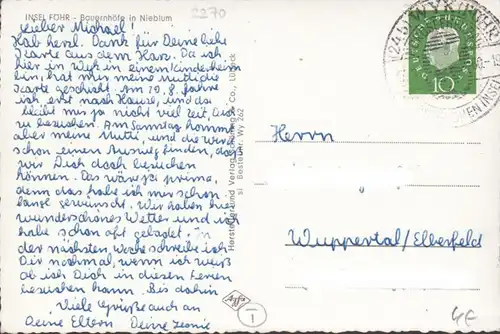 INSEL FÖHR - Bauernhöfe in Nieblum
2270
Lieber Michael!
Hab herzl. Dank für Deine liebe
Karte aus dem Harz. Da ich
hier in Wyk in einem Kinderheim
bin, hat mir meine Mutti die
Karte geschickt. Am 19. 8. fahre
ich erst nach Hause, und da
bleibt mir ja nicht viel Zeit, Dich
zu besuchen. Am Samstag kommt
aber meine Mutti und die wird
schon einen Ausweg finden, daß
wir Dich doch besuchen
können. Das wäre ja prima,
denn das habe ich mir schon
lange gewünscht. Wir haben hier
wunderschönes Wetter und ich
habe schon oft gebadet. In
der nächsten Woche schreibe ich
Dir nochmal, wenn ich weiß
ob ich Dich in diesen Ferien
besuchen kann. Bis dahin
Viele Grüße auch an
Deine Eltern Deine
Hersteller und Verlag Schöning & Co., Lübeck
Bestellnr. Wy 262
(24b) WYK
DEUTSCHE BUNDESPOST
10
Herrn
Wuppertal/Elberfeld
1
4€